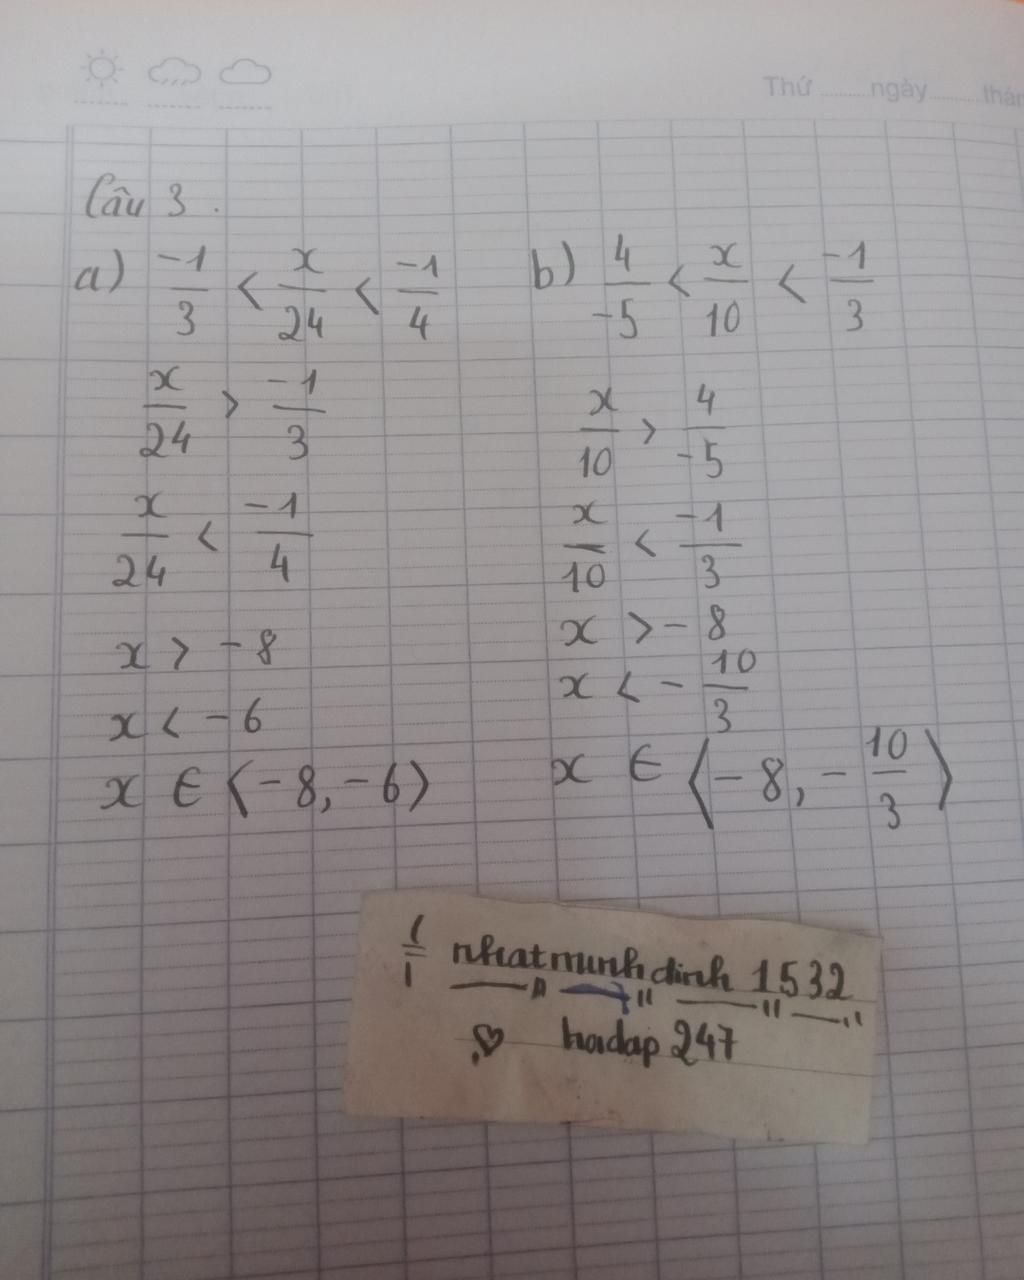 Thứ ........ ngày ........ thán
Câu 3.
a) -1/3 < x/24 < -1/4
x/24 > -1/3
x/24 < -1/4
x > -8
x < -6
x ∈ (-8, -6)
b) 4/-5 < x/10 < -1/3
x/10 > 4/-5
x/10 < -1/3
x > -8
x < -10/3
x ∈ (-8, -10/3)
nhatminhdinh 1532
hoidap 247